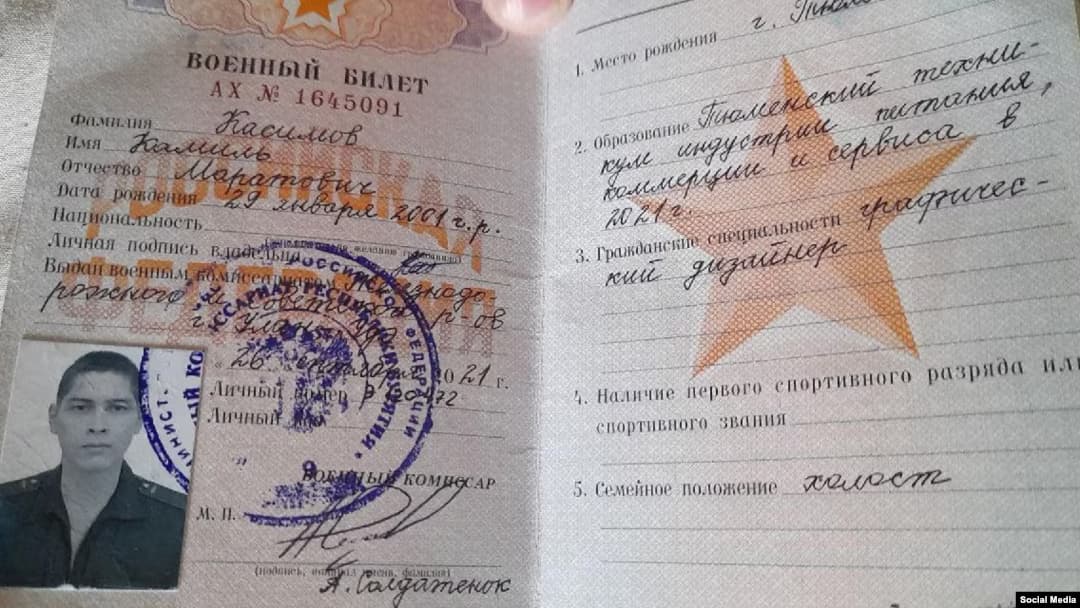 ВОЕННЫЙ БИЛЕТ
АХ № 1645091
Фамилия Касимов
Имя Камиль
Отчество Маратович
Дата рождения 29 января 2001 г.р.
Национальность
Личная подпись владельца
Выдан военным комиссариатом Железнодо-
рожного и Советского р-ов
г. Улан-Удэ
« 26 » 2021 г.
Личный номер
Личный
ВОЕННЫЙ КОМИССАР
М. П.
А. Солдатенок
г.
1. Место рождения
2. Образование Тюменский техни-
кум индустрии питания,
коммерции и сервиса в
2021 г.
3. Гражданские специальности графичес-
кий дизайнер
4. Наличие первого спортивного разряда или
спортивного звания
5. Семейное положение холост
Social Media